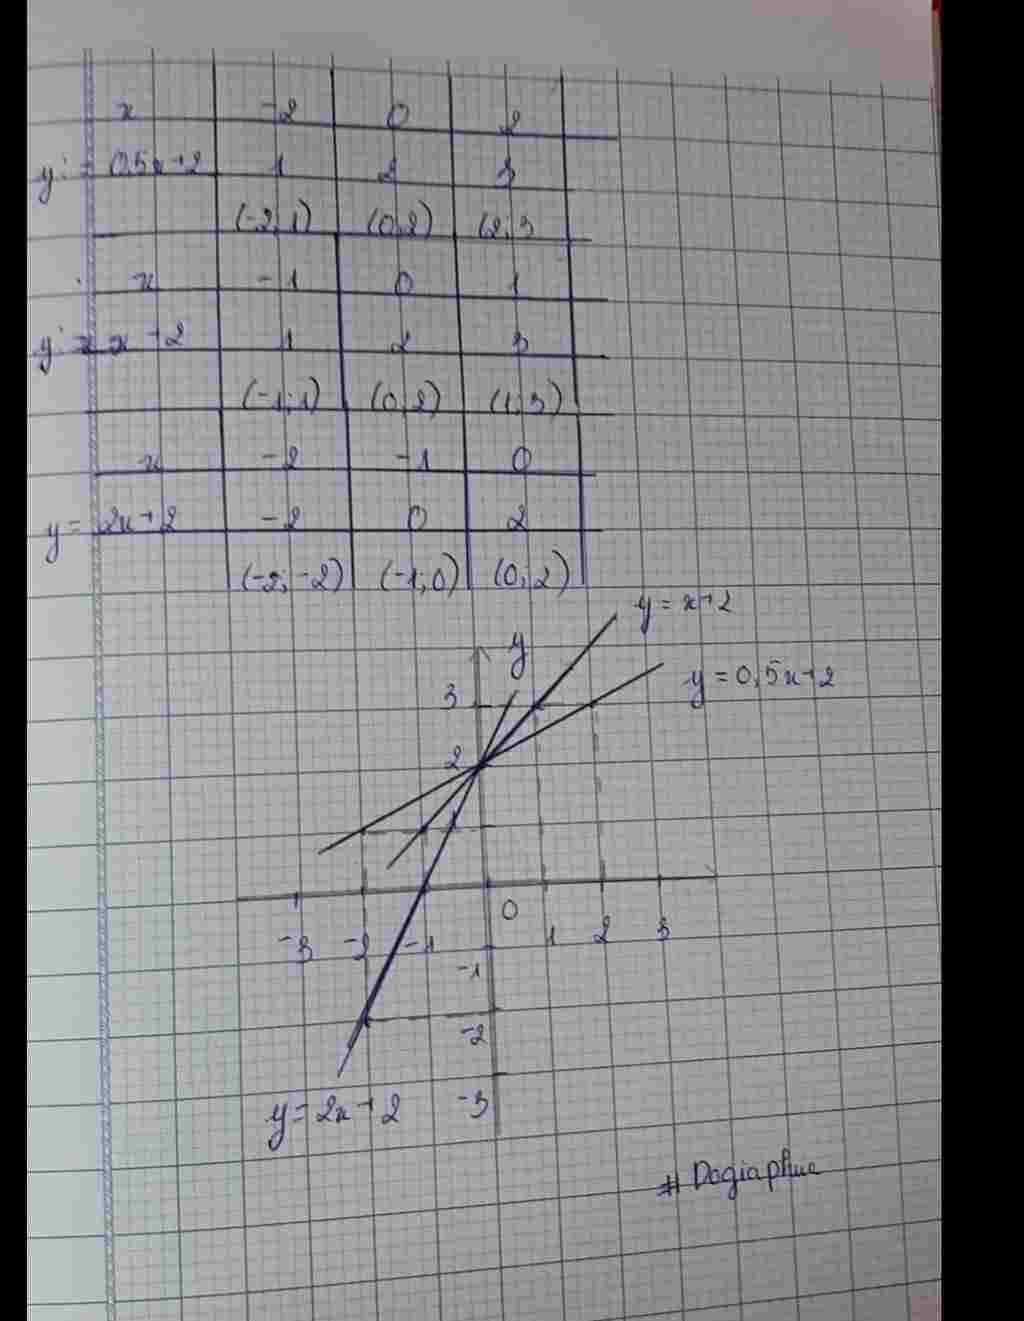 x -2 0 2
y = 0,5x+2 1 2 3
(-2;1) (0;2) (2;3
x -1 0 1
y = x+2 1 2 3
(-1;1) (0;2) (1;3)
x -2 -1 0
y = 2x+2 -2 0 2
(-2;-2) (-1;0) (0;2)
y = x+2
y
y = 0,5x+2
3
2
0
-3 -2 -1 1 2 3
-1
-2
-3
y = 2x+2
# Dogiaphuc